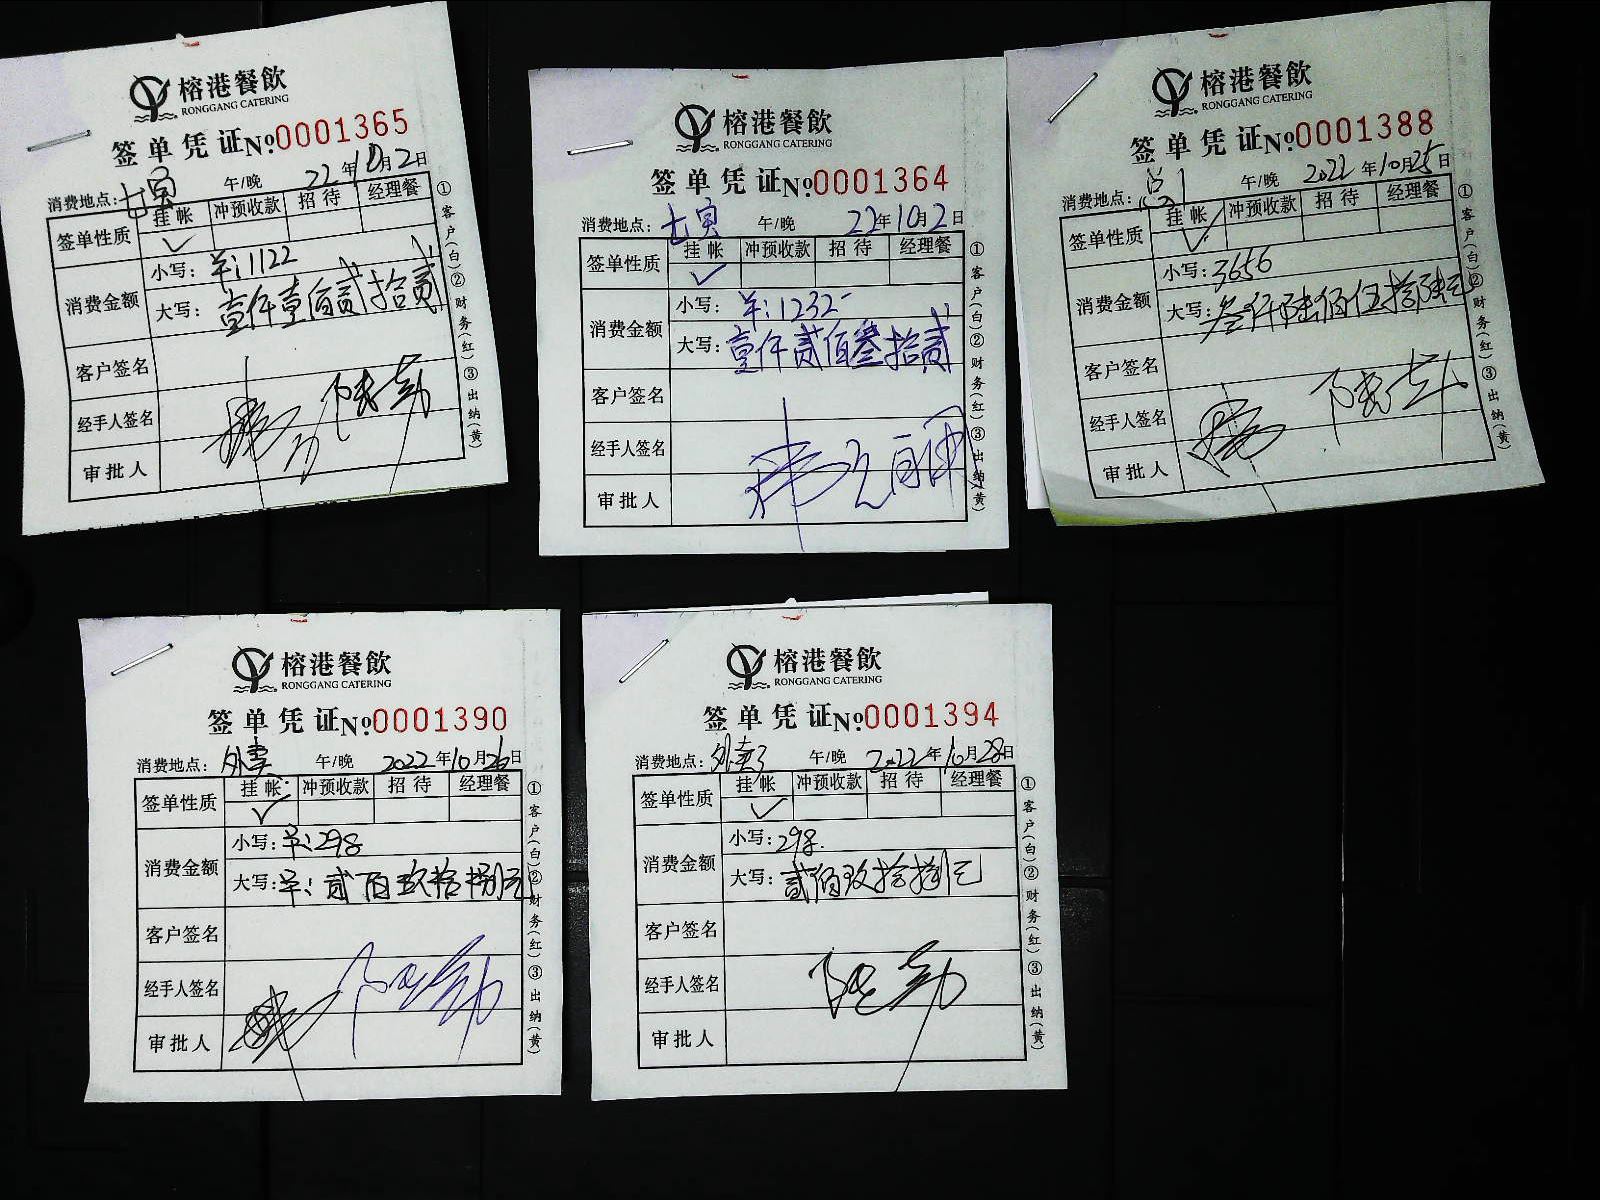 榕港餐飲
RONGGANG CATERING
签单凭证 No.0001365
消费地点: 七宾 午/晚 22年10月2日
签单性质 挂帐 冲预收款 招待 经理餐
✓
消费金额 小写: 羊:1122
大写: 壹仟壹佰贰拾贰
客户签名
经手人签名
审批人
①客户(白)②财务(红)③出纳(黄)
榕港餐飲
RONGGANG CATERING
签单凭证 No.0001364
消费地点: 七宾 午/晚 22年10月2日
签单性质 挂帐 冲预收款 招待 经理餐
✓
消费金额 小写: 羊:1232-
大写: 壹仟贰佰叁拾贰
客户签名
经手人签名
审批人
①客户(白)②财务(红)③出纳(黄)
榕港餐飲
RONGGANG CATERING
签单凭证 No.0001388
消费地点: 午/晚 2022年10月25日
签单性质 挂帐 冲预收款 招待 经理餐
✓
消费金额 小写: 3656
大写: 叁仟陆佰伍拾陆元
客户签名
经手人签名
审批人
①客户(白)②财务(红)③出纳(黄)
榕港餐飲
RONGGANG CATERING
签单凭证 No.0001390
消费地点: 外卖 午/晚 2022年10月26日
签单性质 挂帐 冲预收款 招待 经理餐
✓
消费金额 小写: 羊:298
大写: 羊:贰佰玖拾捌元
客户签名
经手人签名
审批人
①客户(白)②财务(红)③出纳(黄)
榕港餐飲
RONGGANG CATERING
签单凭证 No.0001394
消费地点: 外卖 午/晚 2022年10月28日
签单性质 挂帐 冲预收款 招待 经理餐
✓
消费金额 小写: 298.
大写: 贰佰玖拾捌元
客户签名
经手人签名
审批人
①客户(白)②财务(红)③出纳(黄)